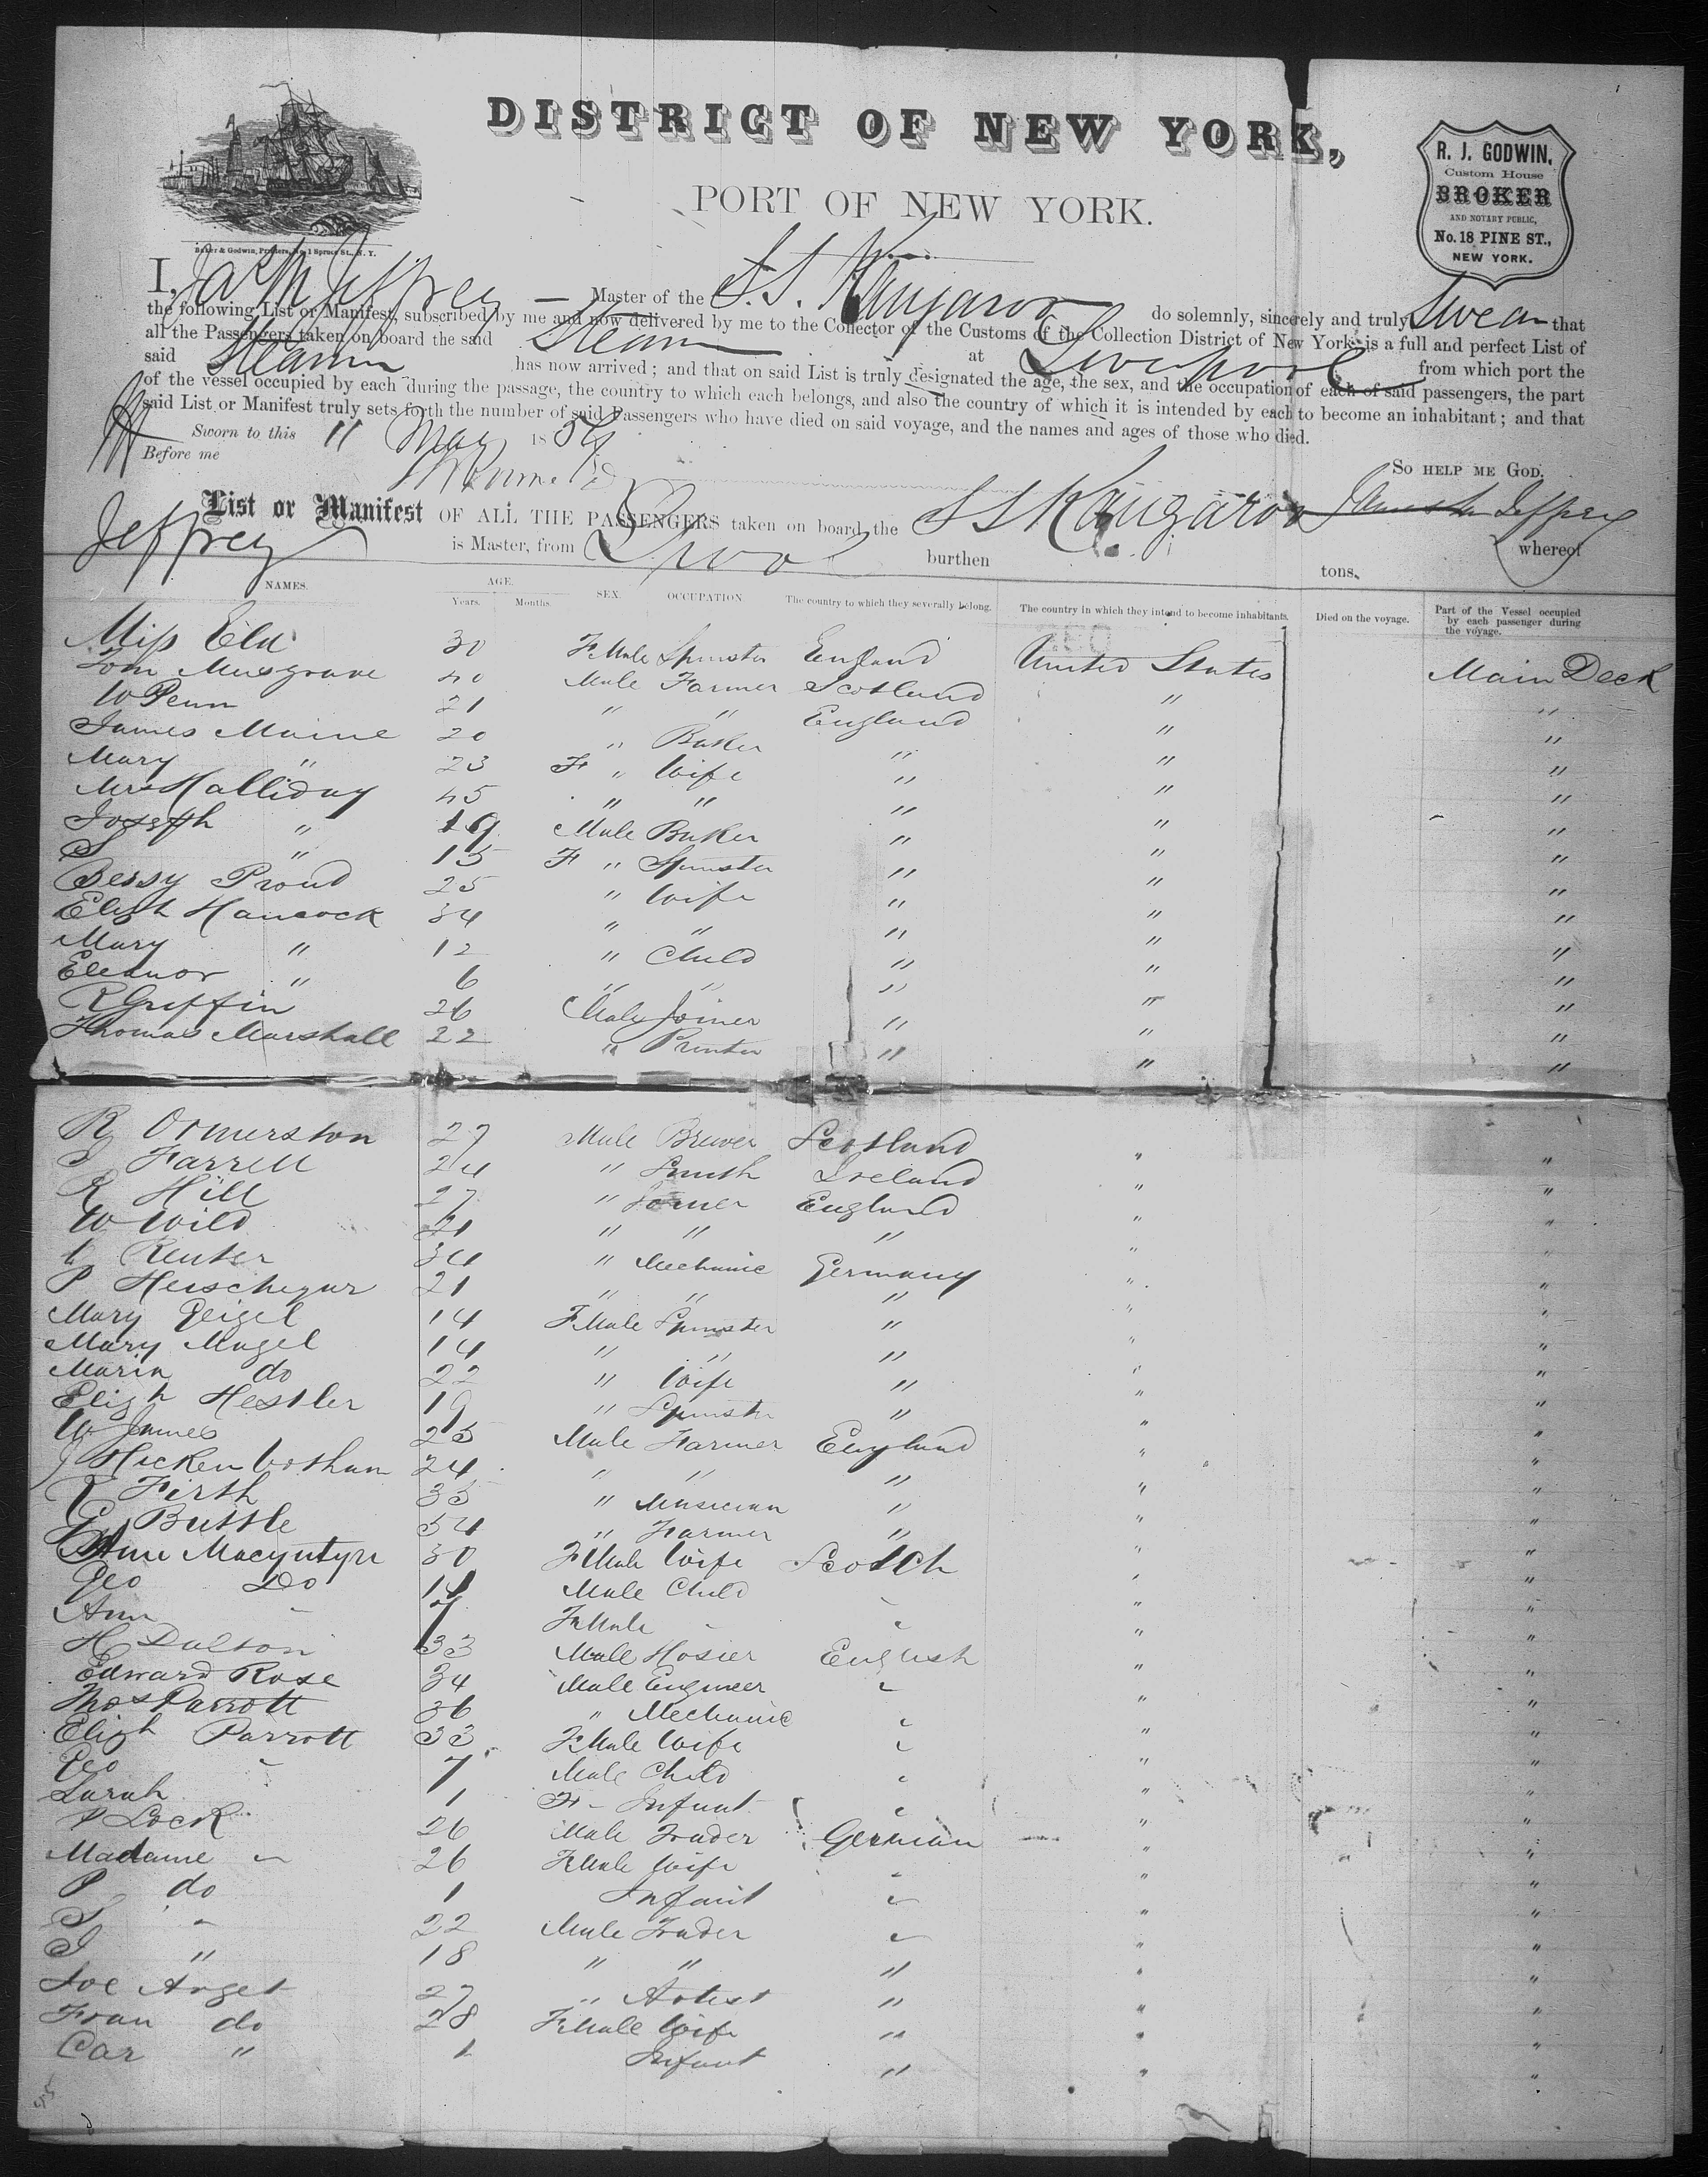 DISTRICT OF NEW YORK,
PORT OF NEW YORK.
R. J. GODWIN,
Custom House
BROKER
AND NOTARY PUBLIC,
No. 18 PINE ST.,
NEW YORK.
Baker & Godwin, Printers, No. 1 Spruce St., N. Y.
I, Jas Jeffrey — Master of the S.S. Kangaroo do solemnly, sincerely and truly Swear that
the following List or Manifest, subscribed by me and now delivered by me to the Collector of the Customs of the Collection District of New York, is a full and perfect List of
all the Passengers taken on board the said Steam at Liverpool from which port the
said Steam has now arrived; and that on said List is truly designated the age, the sex, and the occupation of each of said passengers, the part
of the vessel occupied by each during the passage, the country to which each belongs, and also the country of which it is intended by each to become an inhabitant; and that
said List or Manifest truly sets forth the number of said Passengers who have died on said voyage, and the names and ages of those who died.
Sworn to this 11 May 1859
Before me
So help me God.
List or Manifest OF ALL THE PASSENGERS taken on board the SS Kangaroo James Jeffrey whereof
Jeffrey is Master, from Lpool burthen tons.
NAMES. AGE. Years. Months. SEX. OCCUPATION The country to which they severally belong. The country in which they intend to become inhabitants. Died on the voyage. Part of the Vessel occupied by each passenger during the voyage.
Miss Eld 30 FMale Spinster England United States Main Deck
Tom Musgrave 40 Male Farmer Scotland " "
W Penn 21 " " England " "
James Maine 20 " Baker " " "
Mary " 23 F " Wife " " "
Mrs Halliday 45 " " " " "
Joseph " 19 Male Baker " " "
S " 15 F " Spinster " " "
Bessy Proud 25 " Wife " " "
Elizh Hancock 34 " " " " "
Mary " 12 " Child " " "
Eleanor " 6 " " " " "
R Griffin 26 Male Joiner " " "
Thomas Marshall 22 " Printer " " "
R Ormerston 27 Male Brewer Scotland " "
J Farrell 24 " Smith Ireland " "
R Hill 27 " Joiner England " "
W Wild 21 " " " " "
Reuter 34 " Mechanic Germany " "
P Herschegur 21 " " " " "
Mary Geigel 14 FMale Spinster " " "
Mary Magel 14 " " " " "
Maria do 22 " Wife " " "
Elizh Hestler 19 " Spinster " " "
W James 25 Male Farmer England " "
J Hickenbotham 24 " " " " "
R Firth 35 " Musician " " "
Bustle 54 " Farmer " " "
Ann Macyntyre 30 FMale Wife Scotch " "
Geo Do 14 Male Child " " "
Ann " 7 FMale " " " "
H Dalton 33 Male Hosier English " "
Edward Rose 34 Male Engineer " " "
Thos Parrott 36 " Mechanic " " "
Elizh Parrott 33 FMale Wife " " "
Geo " 7 Male Child " " "
Sarah 1 F - Infant " " "
P Lock 26 Male Trader German " "
Madame " 26 FMale Wife " " "
P do 1 Infant " " "
S " 22 Male Trader " " "
J " 18 " " " " "
Joe Anget 27 " Artist " " "
Fran do 28 FMale Wife " " "
Car " 1 Infant " " "